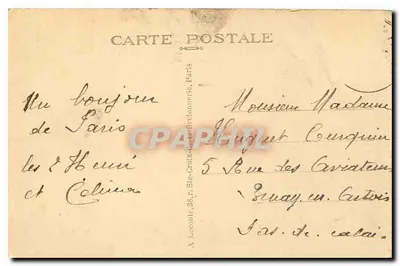 CARTE POSTALE
Un bonjour
de Paris
les 2 Henri
et Célina
A Leconte, 38, r. Ste-Croix-de-la-Bretonnerie, Paris
CPAPHIL
Monsieur Madame
Hugust
5 Rue des Aviateurs
Bruay. en. Artois
Pas. de. calais